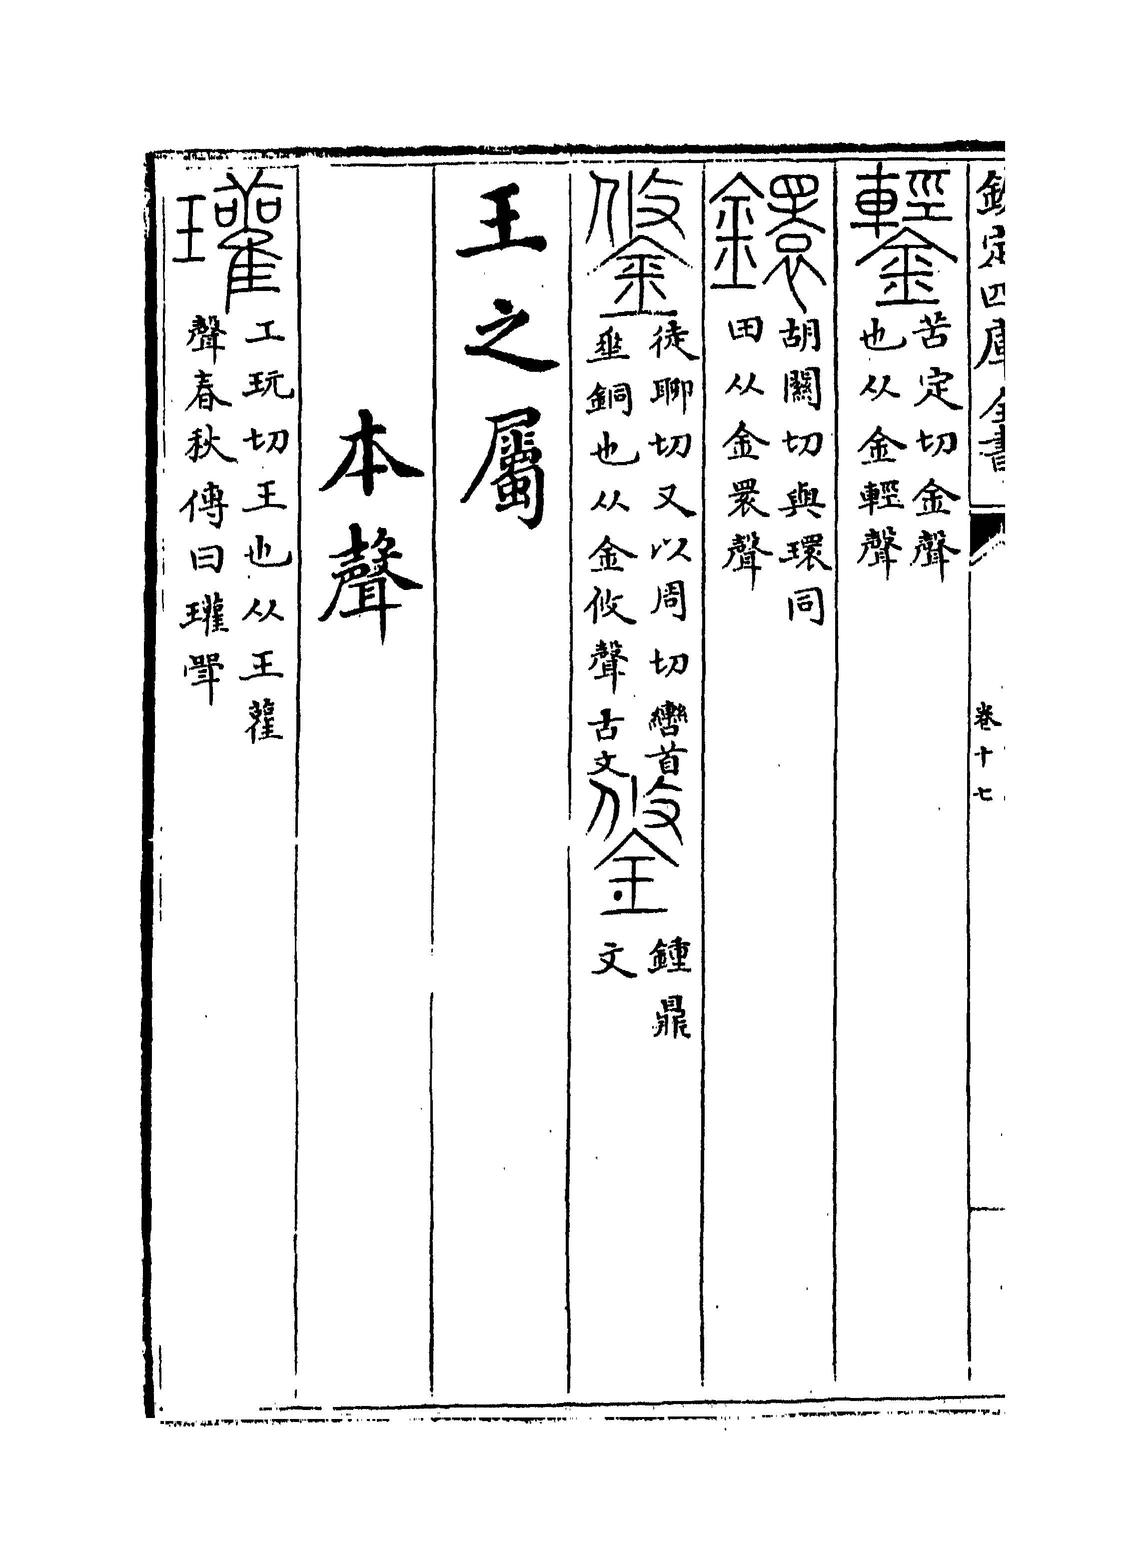 欽定四庫全書
卷十七
鑋
苦定切金聲
也从金輕聲
鐶
胡關切與環同
田从金睘聲
鋚
徒聊切又以周切轡首
垂銅也从金攸聲古文
鋚
鍾鼎
文
王之屬
本聲
瓘
工玩切王也从王雚
聲春秋傳曰瓘斝